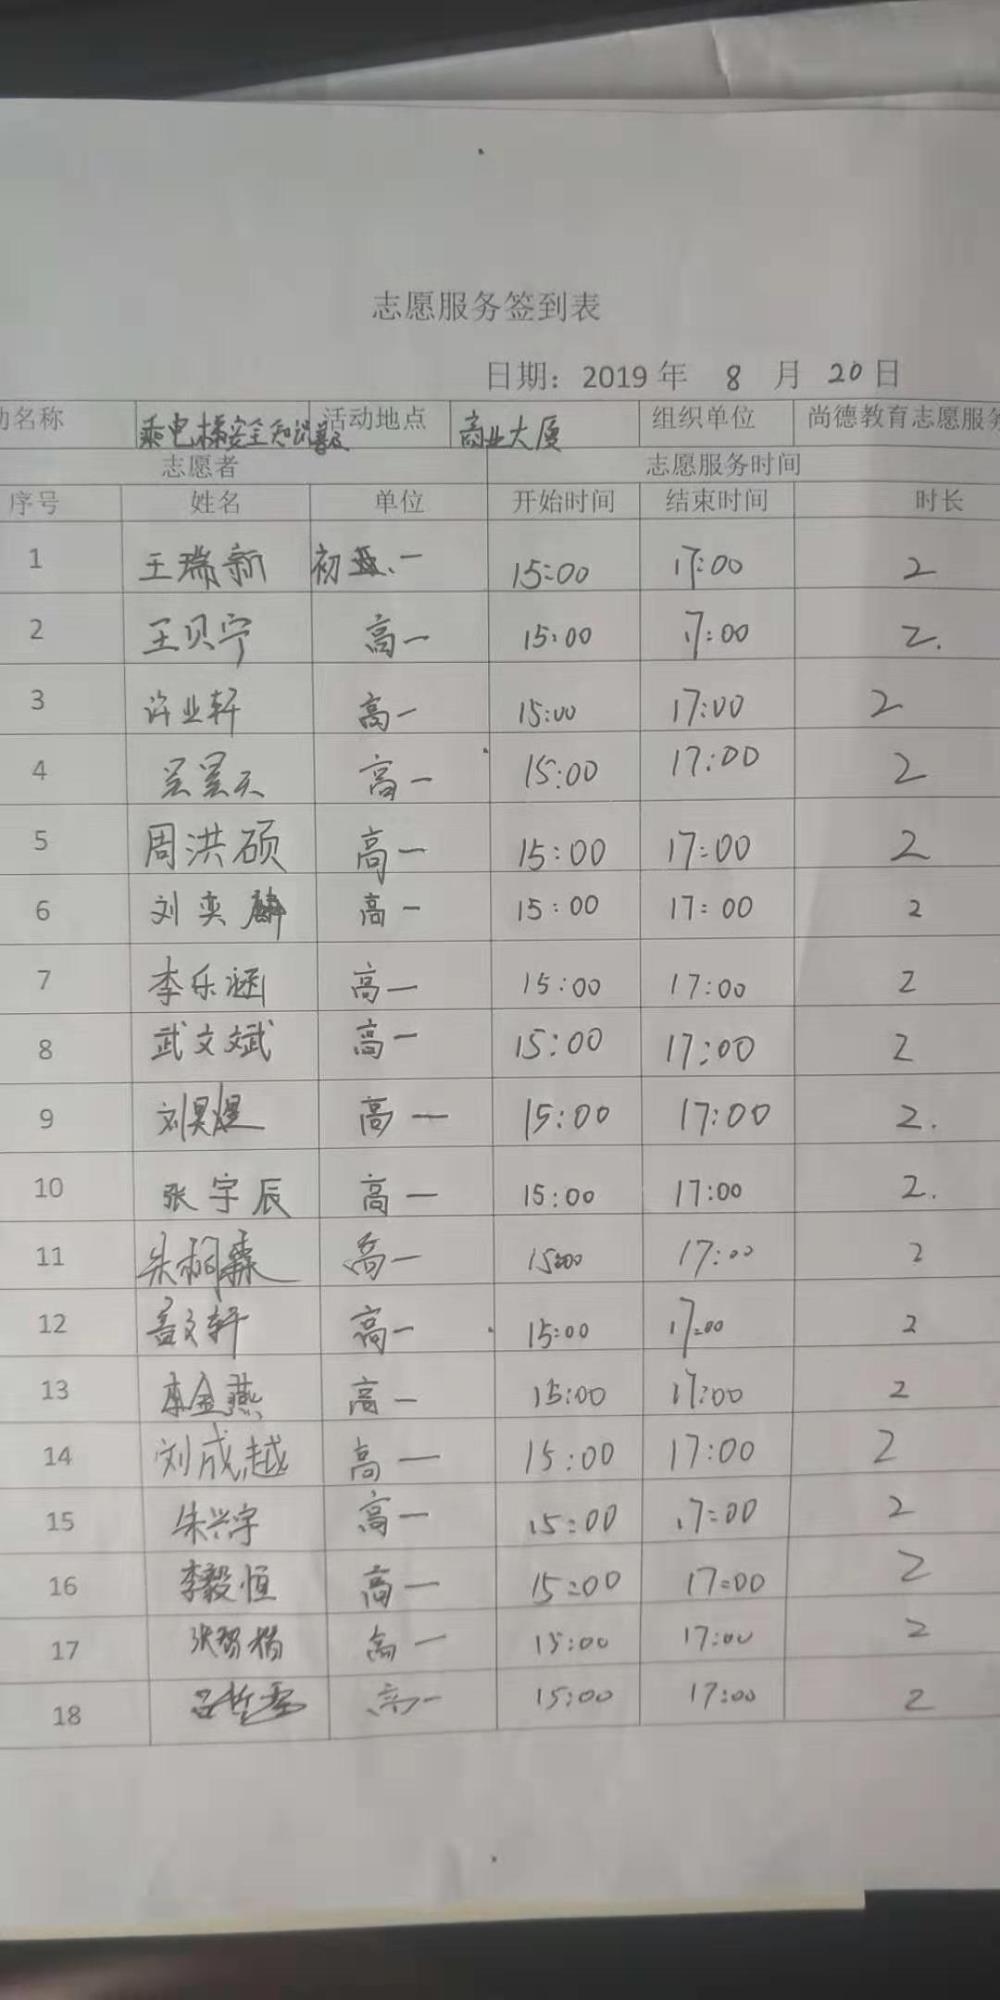 志愿服务签到表
日期：2019年 8 月 20日
动名称 乘电梯安全知识普及 活动地点 商业大厦 组织单位 尚德教育志愿服务
志愿者 志愿服务时间
序号 姓名 单位 开始时间 结束时间 时长
1 王瑞新 初一 15:00 17:00 2
2 王贝宁 高一 15:00 17:00 2.
3 许业轩 高一 15:00 17:00 2
4 吴昊天 高一 15:00 17:00 2
5 周洪硕 高一 15:00 17:00 2
6 刘奕麟 高一 15:00 17:00 2
7 李乐涵 高一 15:00 17:00 2
8 武文斌 高一 15:00 17:00 2
9 刘昊煜 高一 15:00 17:00 2.
10 张宇辰 高一 15:00 17:00 2.
11 朱桐霖 高一 15:00 17:00 2
12 孟文轩 高一 15:00 17:00 2
13 李金燕 高一 15:00 17:00 2
14 刘成越 高一 15:00 17:00 2
15 朱兴宇 高一 15:00 17:00 2
16 李毅恒 高一 15:00 17:00 2
17 高一 15:00 17:00 2
18 高一 15:00 17:00 2